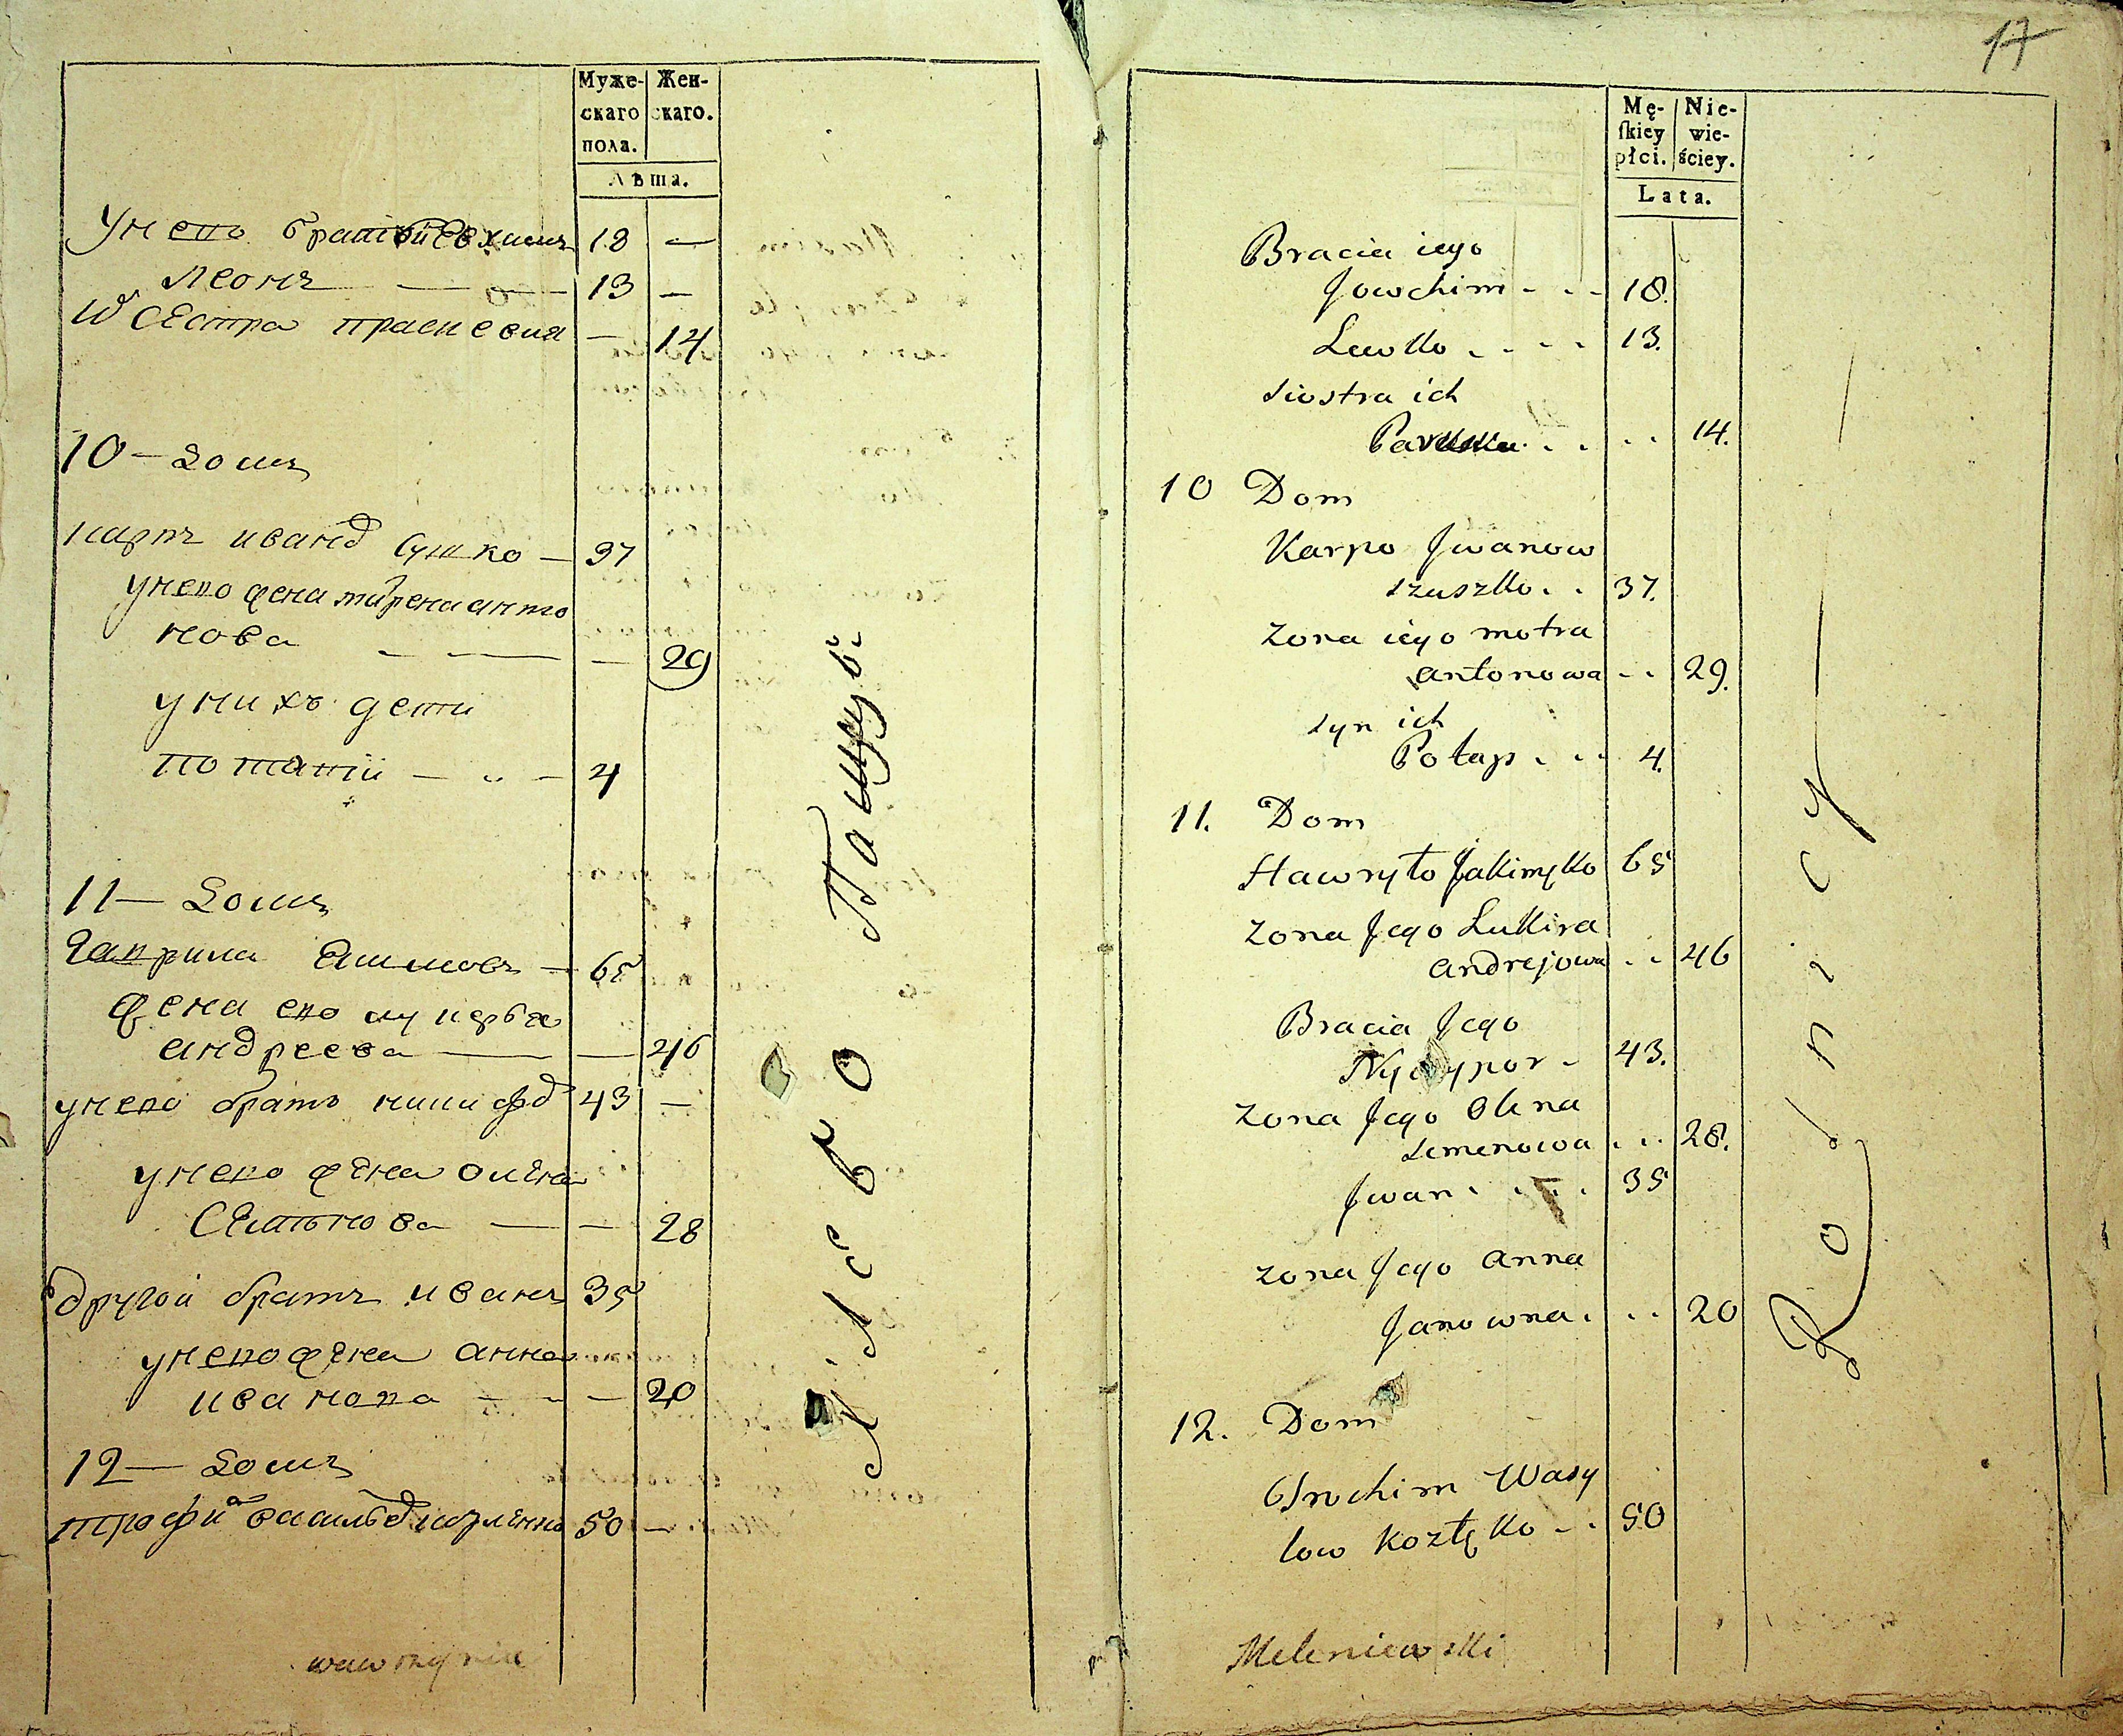 Муже- Жен-
скаго скаго.
пола.
Лѣта.
у него братья Евхимъ 18 —
Леонъ — — 13 —
и сестра прасковия — 14
10 — Домъ
карпъ иванов Сушко — 37
у него жена матрена анто
нова — — — 29
у нихъ дети
потапій — — 4
11 — Домъ
Гаврила Якимовъ — 65
жена его лукерья
андреева — — 46
у него братъ никифор 43 —
у него жена олена
Семенова — — 28
другой братъ иванъ 35
у него жена анна
иванова — — — 20
12 — Домъ
трофим васильев козленко 50 —
wawrzyniec
Пащуть
Лісво
17
Mę- Nie-
ſkiey wie-
płci. ściey.
Lata.
Bracia iego
Jowchim - - - 18.
Lewko . - - - 13.
siostra ich
Paraska . . . . 14.
10 Dom
Karpo Jwanow
szuszko . . 37.
zona iego motra
antonowa - . 29.
syn ich
Potap . . . 4.
11. Dom
Hawryło Jakimęko 65
zona Jego Lukira
andrejowa . . 46
Bracia Jego
Nyczypor - 43.
zona Jego Olena
semenowa . . . 28.
Jwan . . . . 35
zona Jego anna
Janowna . . . 20
12. Dom
Trochim Wasy
low kozłęko - . 50
Meleniewski
Rolnicy